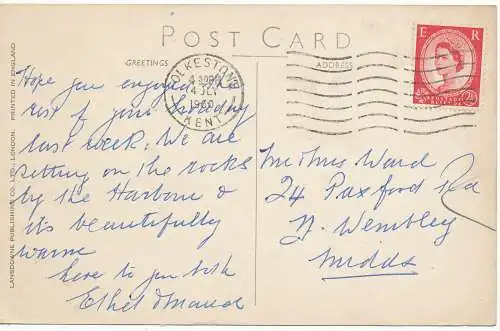 POST CARD
GREETINGS
ADDRESS
FOLKESTONE
4 JLY
1960
KENT
E R
POSTAGE REVENUE
2½D
Hope you enjoyed
rest of your holiday
last week. We are
sitting on the rocks
by the Harbour &
it's beautifully
warm
love to you both
Ethel & Maud
Mr & Mrs Ward
24 Paxford Rd
N. Wembley
Middx
LANSDOWNE PUBLISHING CO., LTD., LONDON. PRINTED IN ENGLAND